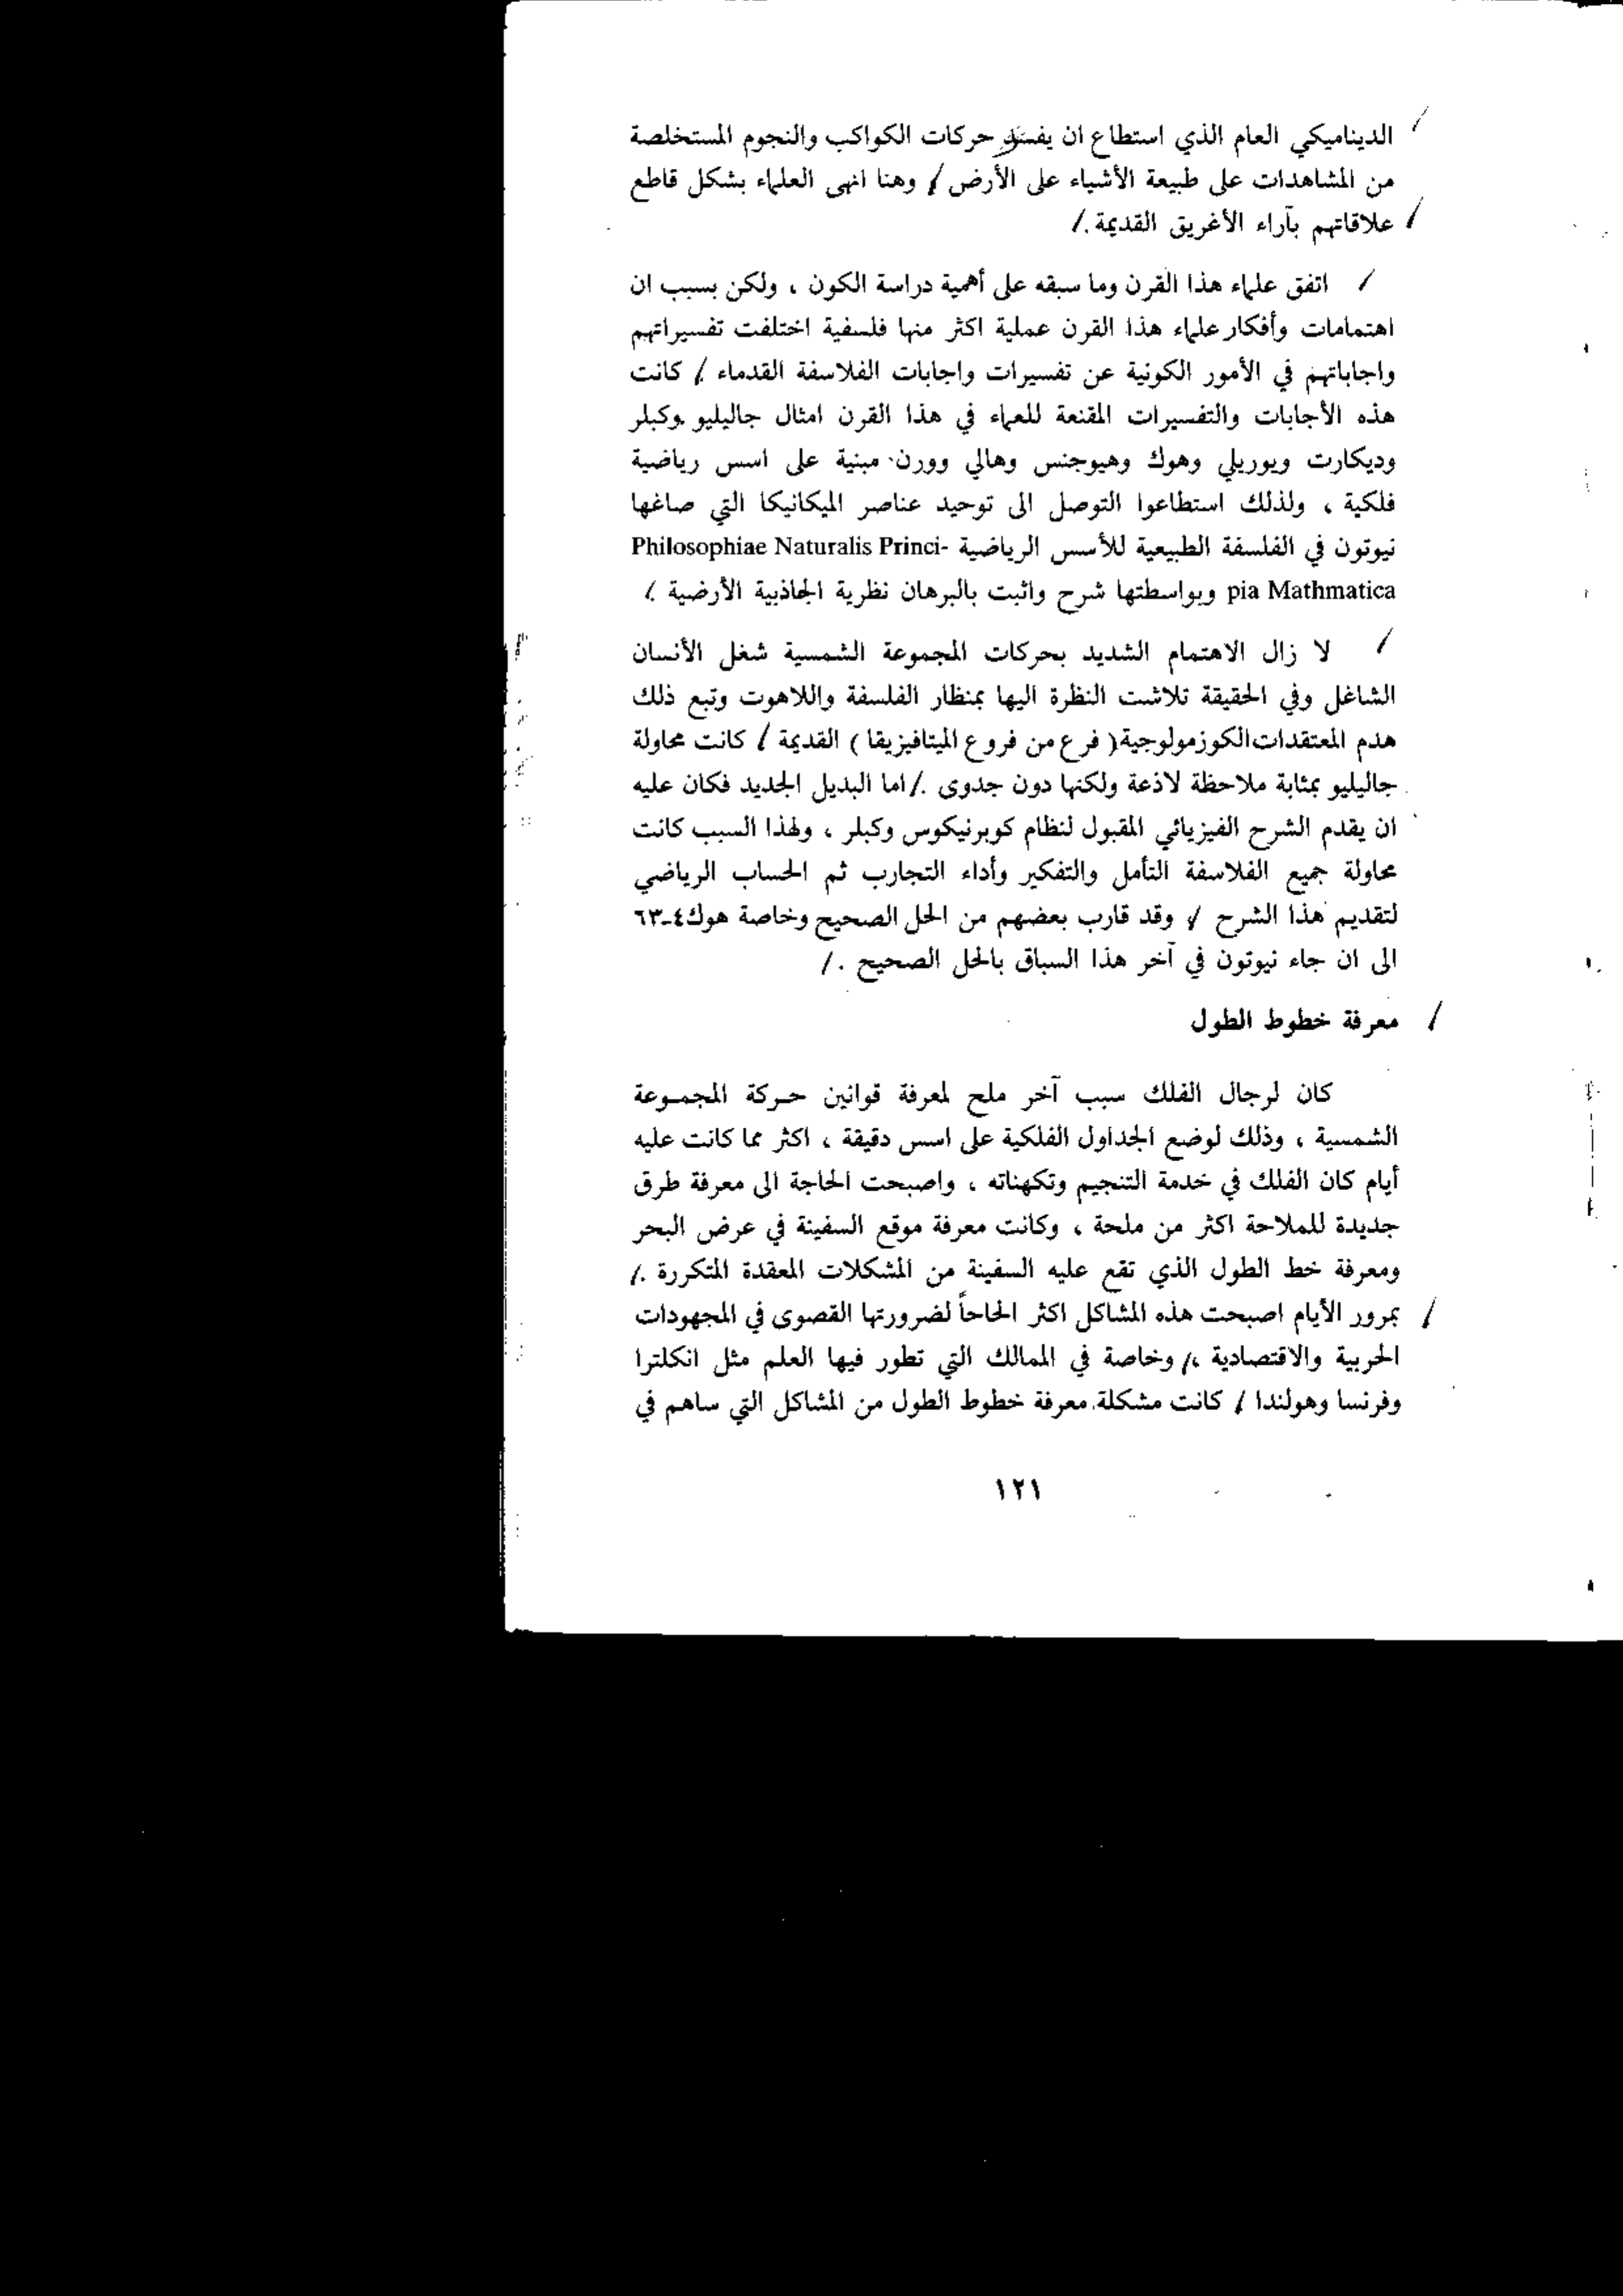 الديناميكي العام الذي استطاع ان يفسر حركات الكواكب والنجوم المستخلصة
من المشاهدات على طبيعة الأشياء على الأرض / وهنا انهى العلماء بشكل قاطع
علاقاتهم بآراء الأغريق القديمة . /
/ اتفق علماء هذا القرن وما سبقه على أهمية دراسة الكون ، ولكن بسبب ان
اهتمامات وأفكار علماء هذا القرن عملية اكثر منها فلسفية اختلفت تفسيراتهم
واجاباتهم في الأمور الكونية عن تفسيرات واجابات الفلاسفة القدماء . / كانت
هذه الأجابات والتفسيرات المقنعة للعلماء في هذا القرن امثال جاليليو وكبلر
وديكارت وبوريلي وهوك وهيوجنس وهالي وورن مبنية على اسس رياضية
فلكية ، ولذلك استطاعوا التوصل الى توحيد عناصر الميكانيكا التي صاغها
نيوتون في الفلسفة الطبيعية للأسس الرياضية Philosophiae Naturalis Princi-
pia Mathmatica وبواسطتها شرح واثبت بالبرهان نظرية الجاذبية الأرضية . /
/ لا زال الاهتمام الشديد بحركات المجموعة الشمسية شغل الأنسان
الشاغل وفي الحقيقة تلاشت النظرة اليها بمنظار الفلسفة واللاهوت وتبع ذلك
هدم المعتقدات الكوزمولوجية ( فرع من فروع الميتافيزيقا ) القديمة / كانت محاولة
جاليليو بمثابة ملاحظة لاذعة ولكنها دون جدوى . / اما البديل الجديد فكان عليه
ان يقدم الشرح الفيزيائي المقبول لنظام كوبرنيكوس وكبلر ، ولهذا السبب كانت
محاولة جميع الفلاسفة التأمل والتفكير وأداء التجارب ثم الحساب الرياضي
لتقديم هذا الشرح / وقد قارب بعضهم من الحل الصحيح وخاصة هوك٤ـ٦٣
الى ان جاء نيوتون في آخر هذا السباق بالحل الصحيح . /
/ معرفة خطوط الطول
كان لرجال الفلك سبب آخر ملح لمعرفة قوانين حركة المجموعة
الشمسية ، وذلك لوضع الجداول الفلكية على اسس دقيقة ، اكثر مما كانت عليه
أيام كان الفلك في خدمة التنجيم وتكهناته ، واصبحت الحاجة الى معرفة طرق
جديدة للملاحة اكثر من ملحة ، وكانت معرفة موقع السفينة في عرض البحر
ومعرفة خط الطول الذي تقع عليه السفينة من المشكلات المعقدة المتكررة . /
/ بمرور الأيام اصبحت هذه المشاكل اكثر الحاحاً لضرورتها القصوى في المجهودات
الحربية والاقتصادية ، / وخاصة في الممالك التي تطور فيها العلم مثل انكلترا
وفرنسا وهولندا / كانت مشكلة معرفة خطوط الطول من المشاكل التي ساهم في
١٢١